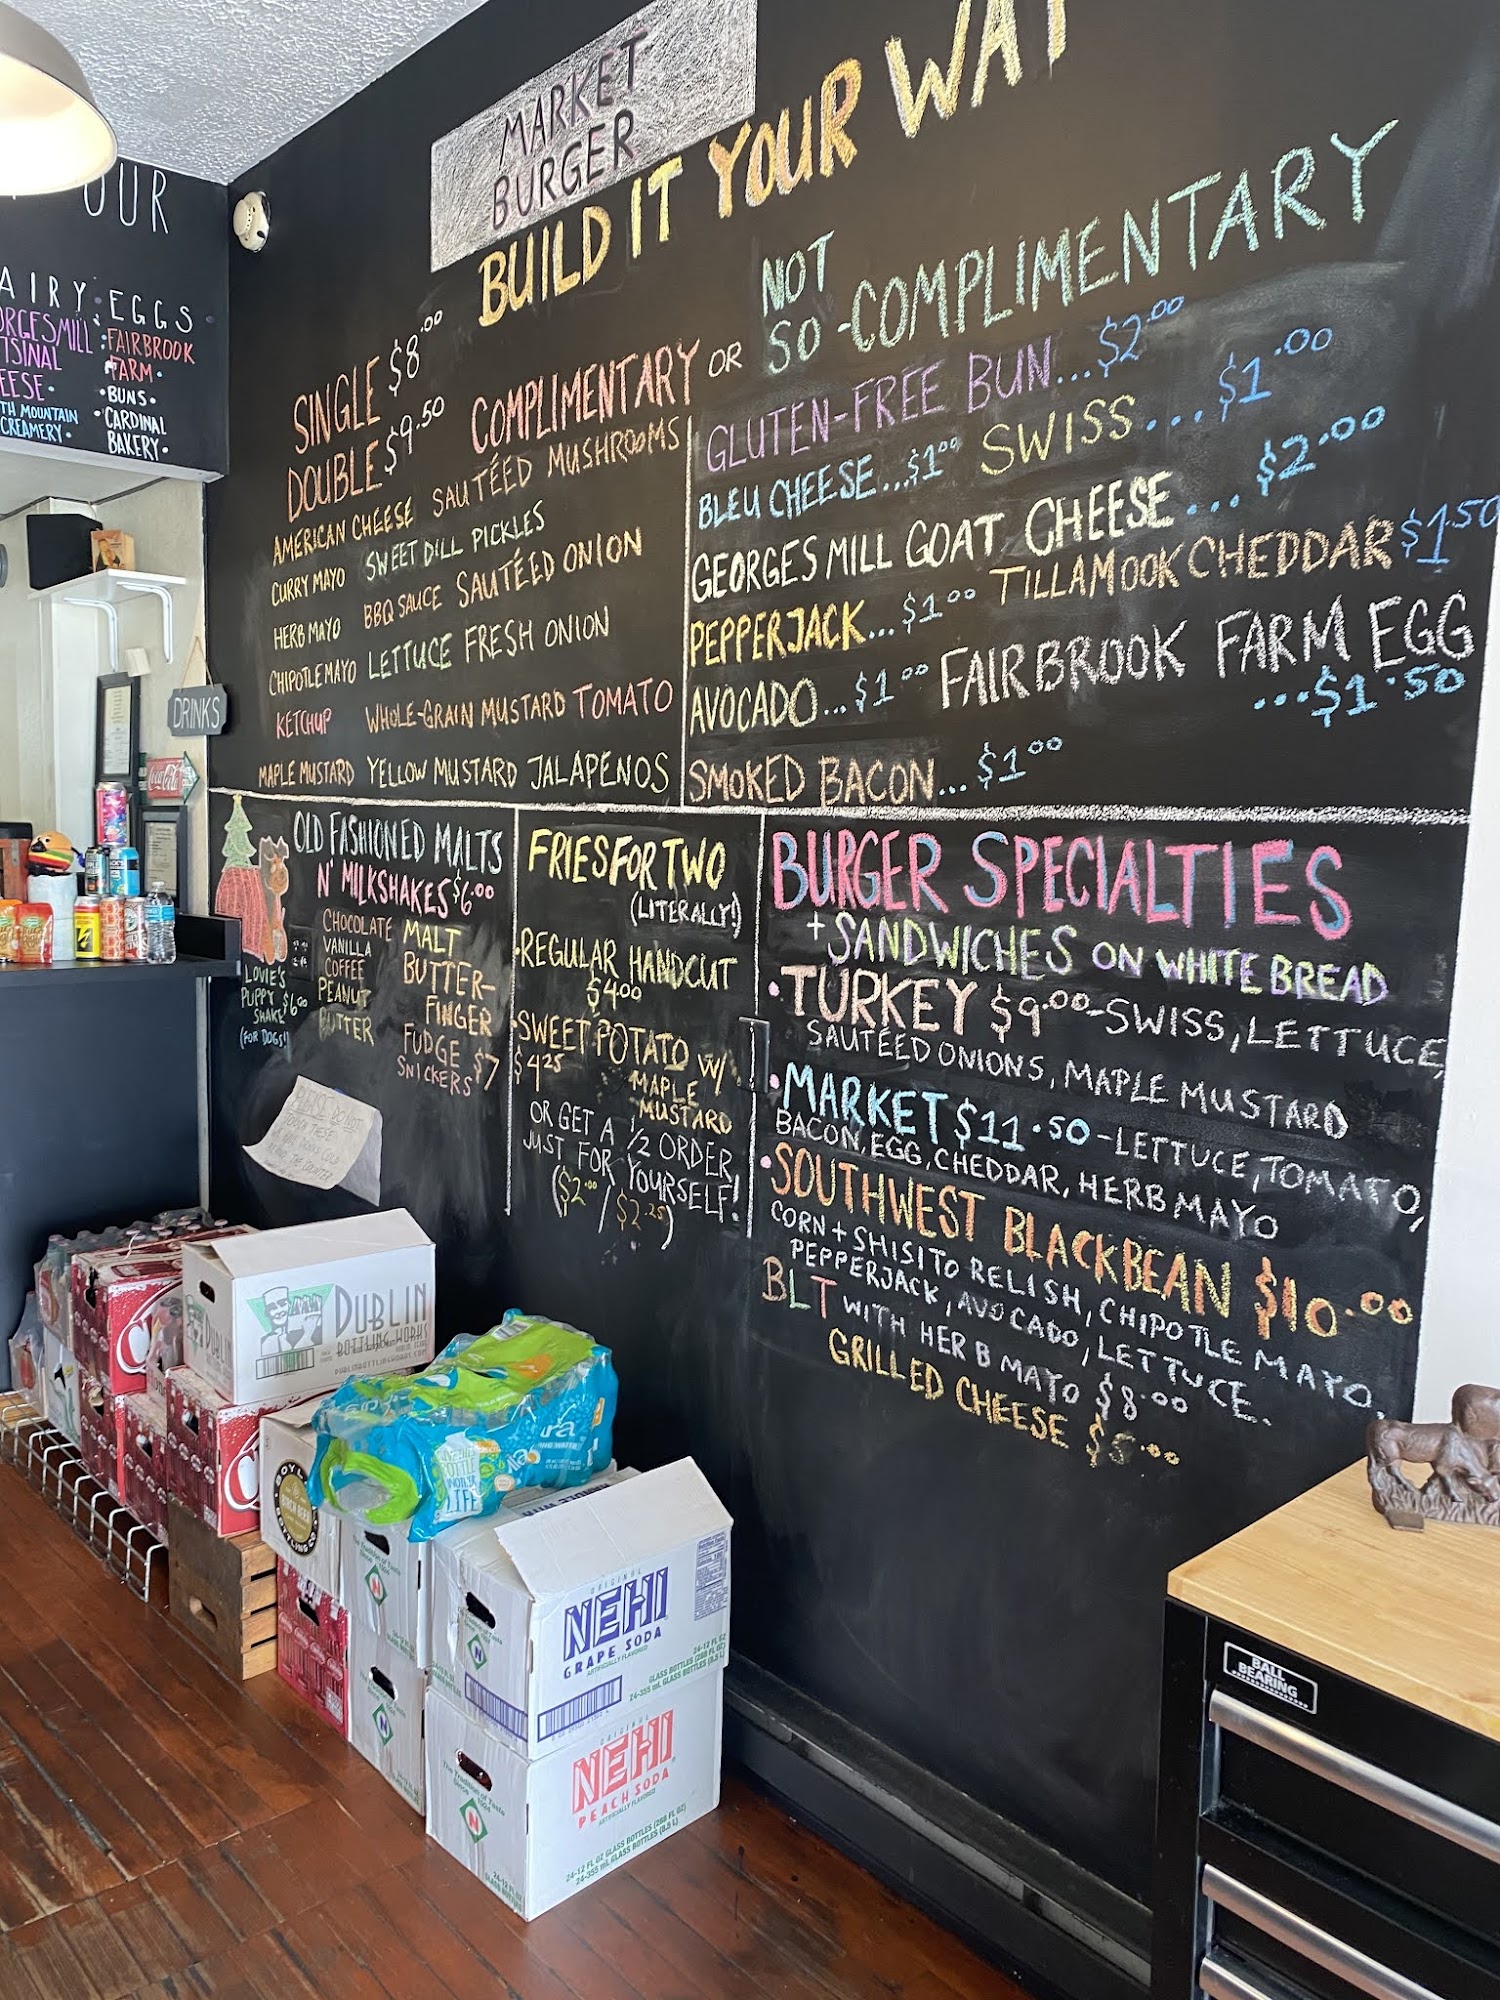 MARKET
BURGER
BUILD IT YOUR WAY
SINGLE $8.00
DOUBLE $9.50
COMPLIMENTARY OR
NOT
SO-COMPLIMENTARY
AMERICAN CHEESE SAUTÉED MUSHROOMS
CURRY MAYO SWEET DILL PICKLES
HERB MAYO BBQ SAUCE SAUTÉED ONION
CHIPOTLE MAYO LETTUCE FRESH ONION
KETCHUP WHOLE-GRAIN MUSTARD TOMATO
MAPLE MUSTARD YELLOW MUSTARD JALAPENOS
GLUTEN-FREE BUN...$2.00
BLEU CHEESE...$1.00 SWISS...$1.00
GEORGES MILL GOAT CHEESE...$2.00
PEPPERJACK...$1.00 TILLAMOOK CHEDDAR $1.50
AVOCADO...$1.00 FAIRBROOK FARM EGG
...$1.50
SMOKED BACON...$1.00
OLD FASHIONED MALTS
N' MILKSHAKES $6.00
CHOCOLATE
VANILLA
COFFEE
PEANUT
BUTTER
MALT
BUTTER-
FINGER
FUDGE
SNICKERS $7
LOVIE'S
PUPPY $6.00
SHAKE
(FOR DOGS!)
FRIES FOR TWO
(LITERALLY!)
•REGULAR HANDCUT
$4.00
•SWEET POTATO W/
$4.25 MAPLE
MUSTARD
OR GET A 1/2 ORDER
JUST FOR YOURSELF!
($2.00/$2.25)
BURGER SPECIALTIES
+ SANDWICHES ON WHITE BREAD
•TURKEY $9.00-SWISS, LETTUCE,
SAUTÉED ONIONS, MAPLE MUSTARD
•MARKET $11.50-LETTUCE, TOMATO,
BACON, EGG, CHEDDAR, HERB MAYO
•SOUTHWEST BLACKBEAN $10.00
CORN + SHISITO RELISH, CHIPOTLE MAYO,
PEPPERJACK, AVOCADO, LETTUCE.
BLT WITH HERB MAYO $8.00
GRILLED CHEESE
OUR
AIRY
EGGS
FAIRBROOK
FARM•
•BUNS•
•CARDINAL
BAKERY•
MOUNTAIN
CREAMERY•
DRINKS
Coca-Cola
DUBLIN
BOTTLING WORKS
LIFE
ORIGINAL
NEHI
GRAPE SODA
ARTIFICIALLY FLAVORED
24-12 FL OZ
GLASS BOTTLES (288 FL OZ)
24-355 mL GLASS BOTTLES (8.5 L)
ORIGINAL
NEHI
PEACH SODA
ARTIFICIALLY FLAVORED
24-12 FL OZ GLASS BOTTLES (288 FL OZ)
24-355 mL GLASS BOTTLES (8.5 L)
BALL
BEARING